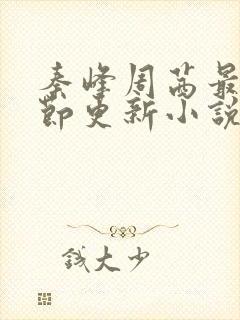 秦峰周茜最
节更新小說
錢大少